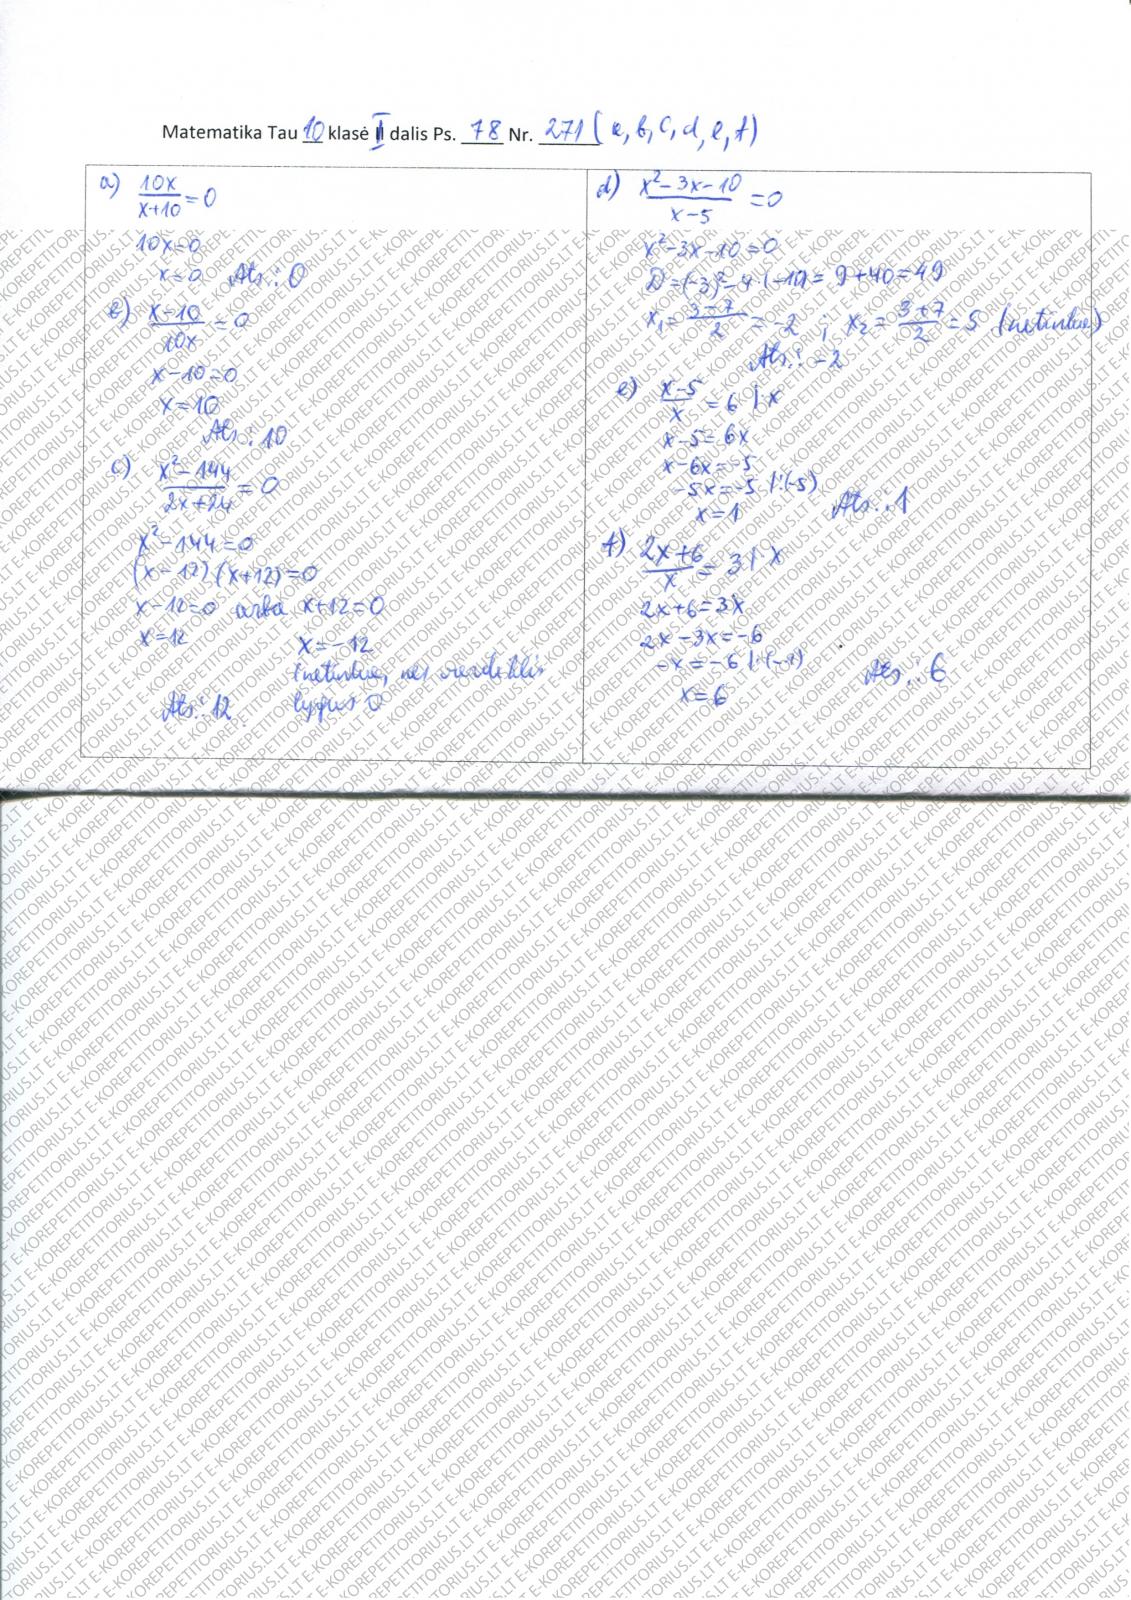 Matematika Tau 10 klasė II dalis Ps. 78 Nr. 271 (a, b, c, d, e, f)
a) 10x/(x+10) = 0
10x=0
x=0 Ats.: 0
b) (x-10)/10x = 0
x-10=0
x=10
Ats.: 10
c) (x²-144)/(2x+24) = 0
x²-144=0
(x-12)(x+12)=0
x-12=0 arba x+12=0
x=12 x=-12
(netinka, nes vardiklis
Ats.: 12 lygus 0
d) (x²-3x-10)/(x-5) = 0
x²-3x-10=0
D=(-3)²-4·(-10)=9+40=49
x₁=(3-7)/2=-2 ; x₂=(3+7)/2=5 (netinka)
Ats.: -2
e) (x-5)/x = 6 |·x
x-5=6x
x-6x=-5
-5x=-5 |:(-5)
x=1 Ats.: 1
f) (2x+6)/x = 3 |·x
2x+6=3x
2x-3x=-6
-x=-6 |:(-1)
x=6 Ats.: 6
E-KOREPETITORIUS.LT